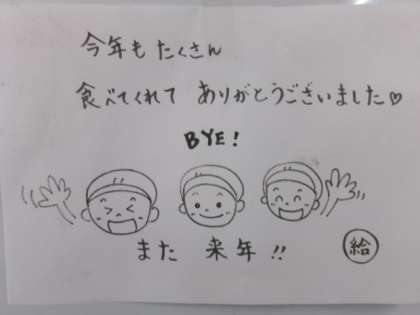 今年もたくさん
食べてくれて ありがとうございました♡
BYE!
また 来年!!
給